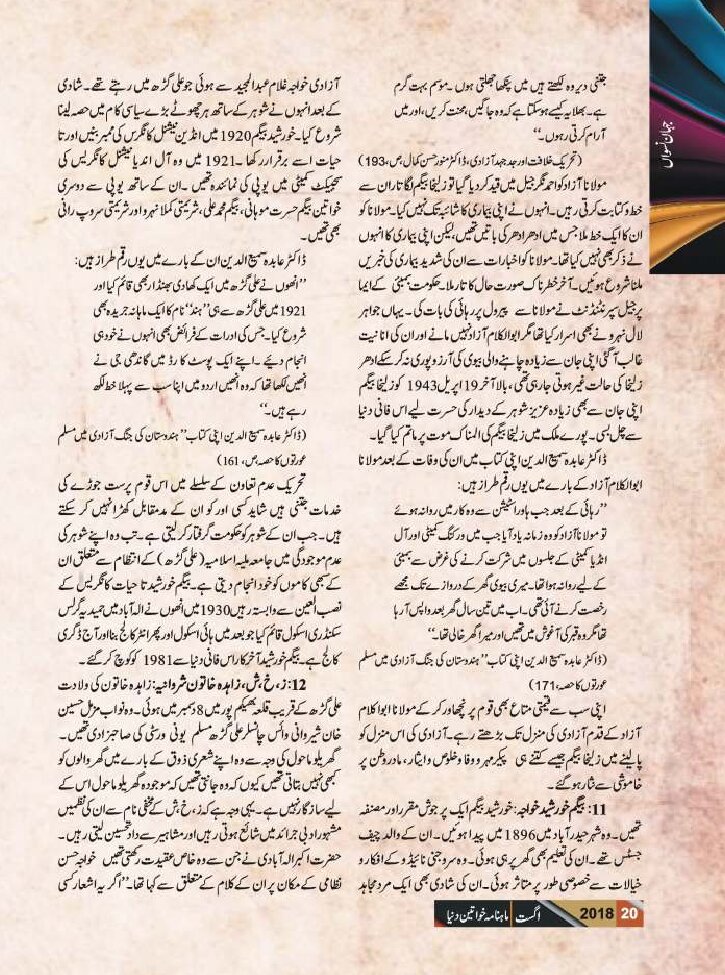 جہان نسواں
جتنی دیر وہ لکھتے ہیں میں پنکھا جھلتی ہوں۔ موسم بہت گرم
ہے۔ بھلا یہ کیسے ہوسکتا ہے کہ وہ جاگیں، محنت کریں، اور میں
آرام کرتی رہوں۔‘‘
(تحریک خلافت اور جدجہد آزادی، ڈاکٹر منور حسن کمال، ص، 193)
مولانا آزاد کو احمد نگر جیل میں قید کردیا گیا تو زلیخا بیگم لگاتار ان سے
خط و کتابت کرتی رہیں۔ انہوں نے اپنی بیماری کا شائبہ تک نہیں کیا۔ مولانا کو
ان کا ایک خط ملا جس میں ادھر ادھر کی باتیں تھیں، لیکن اپنی بیماری کا انہوں
نے ذکر بھی نہیں کیا تھا۔ مولانا کو اخبارات سے ان کی شدید بیماری کی خبریں
ملنا شروع ہوئیں۔ آخر خطرناک صورت حال کا تار ملا۔ حکومت بمبئی کے ایما
پر جیل سپرنٹنڈنٹ نے مولانا سے پیرول پر رہائی کی بات کی۔ یہاں جواہر
لال نہرو نے بھی اسرار کیا تھا مگر ابوالکلام آزاد نہیں مانے اور ان کی انانیت
غالب آ گئی اپنی جان سے زیادہ چاہنے والی بیوی کی آرزو پوری نہ کر سکے ادھر
زلیخا کی حالت غیر ہوتی جا رہی تھی، بالآخر 19 اپریل 1943 کو زلیخا بیگم
اپنی جان سے بھی زیادہ عزیز شوہر کے دیدار کی حسرت لیے اس فانی دنیا
سے چل بسی۔ پورے ملک میں زلیخا بیگم کی المناک موت پر ماتم کیا گیا۔
ڈاکٹر عابدہ سمیع الدین اپنی کتاب میں ان کی وفات کے بعد مولانا
ابوالکلام آزاد کے بارے میں یوں رقم طراز ہیں:
’’رہائی کے بعد جب ہاوراسٹیشن سے وہ کار میں روانہ ہوئے
تو مولانا آزاد کو وہ زمانہ یاد آیا جب میں ورکنگ کمیٹی اور آل
انڈیا کمیٹی کے جلسوں میں شرکت کرنے کی غرض سے بمبئی
کے لیے روانہ ہوا تھا۔ میری بیوی گھر کے دروازے تک مجھے
رخصت کرنے آئی تھی۔ اب میں تین سال گھر بعد واپس آ رہا
تھا مگر وہ قبر کی آغوش میں تھیں اور میرا گھر خالی تھا۔‘‘
(ڈاکٹر عابدہ سمیع الدین اپنی کتاب’’ہندوستان کی جنگ آزادی میں مسلم
عورتوں کا حصہ، 171)
اپنی سب سے قیمتی متاع بھی قوم پر نچھاور کر کے مولانا ابوالکلام
آزاد کے قدم آزادی کی منزل تک بڑھتے رہے۔ آزادی کی اس منزل کو
پالینے میں زلیخا بیگم جیسے کتنے ہی پیکر مہر و وفا و خلوص و ایثار، مادر وطن پر
خاموشی سے نثار ہو گئے۔
11: بیگم خورشید خواجہ: خورشید بیگم ایک پر جوش مقرر اور مصنفہ
تھیں۔ وہ شہر حیدرآباد میں 1896 میں پیدا ہوئیں۔ ان کے والد چیف
جسٹس تھے۔ ان کی تعلیم بھی گھر پر ہی ہوئی۔ وہ سروجنی نائیڈو کے افکار و
خیالات سے خصوصی طور پر متاثر ہوئی۔ ان کی شادی بھی ایک مرد مجاہد
آزادی خواجہ غلام عبدالمجید سے ہوئی جو علی گڑھ میں رہتے تھے۔ شادی
کے بعد انہوں نے شوہر کے ساتھ ہر چھوٹے بڑے سیاسی کام میں حصہ لینا
شروع کیا۔ خورشید بیگم 1920 میں انڈین نیشنل کانگرس کی ممبر بنیں اور تا
حیات اسے برقرار رکھا۔ 1921 میں وہ آل انڈیا نیشنل کانگریس کی
سبجیکٹ کمیٹی میں یوپی کی نمائندہ تھیں۔ ان کے ساتھ یوپی سے دوسری
خواتین بیگم حسرت موہانی، بیگم محمد علی، شریمتی کملا نہرو اور شریمتی سروپ رانی
بھی تھیں۔
ڈاکٹر عابدہ سمیع الدین ان کے بارے میں یوں رقم طراز ہیں:
’’انھوں نے علی گڑھ میں ایک کھادی بھنڈار بھی قائم کیا اور
1921 میں علی گڑھ سے ہی ’’ہند‘‘ نام کا ایک ماہانہ جریدہ بھی
شروع کیا۔ جس کی ادارات کے فرائض بھی انہوں نے خود ہی
انجام دیئے۔ اپنے ایک پوسٹ کارڈ میں گاندھی جی نے
انھیں لکھا تھا کہ وہ انھیں اردو میں اپنا سب سے پہلا خط لکھ
رہے ہیں۔‘‘
(ڈاکٹر عابدہ سمیع الدین اپنی کتاب’’ہندوستان کی جنگ آزادی میں مسلم
عورتوں کا حصہ، ص، 161)
تحریک عدم تعاون کے سلسلے میں اس قوم پرست جوڑے کی
خدمات جتنی ہیں شاید کسی اور کو ان کے مد مقابل کھڑا نہیں کر سکتے
ہیں۔ جب ان کے شوہر کو حکومت گرفتار کرلیتی ہے۔ تب وہ اپنے شوہر کی
عدم موجودگی میں جامعہ ملیہ اسلامیہ (علی گڑھ) کے انتظام سے متعلق ان
کے سبھی کاموں کو خود انجام دیتی ہے۔ بیگم خورشید تا حیات کانگریس کے
نصب العین سے وابستہ رہیں 1930 میں انھوں نے الہ آباد میں حمیدیہ گرلس
سکنڈری اسکول قائم کیا جو بعد میں ہائی اسکول اور پھر انٹر کالج بنا اور آج ڈگری
کالج ہے۔ بیگم خورشید آخر کار اس فانی دنیا سے 1981 کو کوچ کر گئے۔
12: ز، خ، ش، زاہدہ خاتون شروانیہ: زاہدہ خاتون کی ولادت
علی گڑھ کے قریب قلعہ بھیکم پور میں 8 دسمبر میں ہوئی۔ وہ نواب مزمل حسین
خان شیروانی وائس چانسلر علی گڑھ مسلم یونی ورسٹی کی صاحبزادی تھیں۔
گھریلو ماحول کی وجہ سے وہ اپنے شعری ذوق کے بارے میں گھر والوں کو
کبھی نہیں بتاتی تھیں کیوں کہ وہ جانتی تھیں کہ موجودہ گھریلو ماحول اس کے
لیے سازگار نہیں ہے۔ یہی وجہ ہے کہ ز، خ، ش کے مخفی نام سے ان کی نظمیں
مشہور ادبی جرائد میں شائع ہوتی رہیں اور مشاہیر سے داد تحسین لیتی رہیں۔
حضرت اکبر الہ آبادی نے جن سے وہ خاص عقیدت رکھتی تھیں خواجہ حسن
نظامی کے مکان پر ان کے کلام کے متعلق سے کہا تھا۔ ’’اگر یہ اشعار کسی
ماہنامہ خواتین دنیا | اگست 2018 20